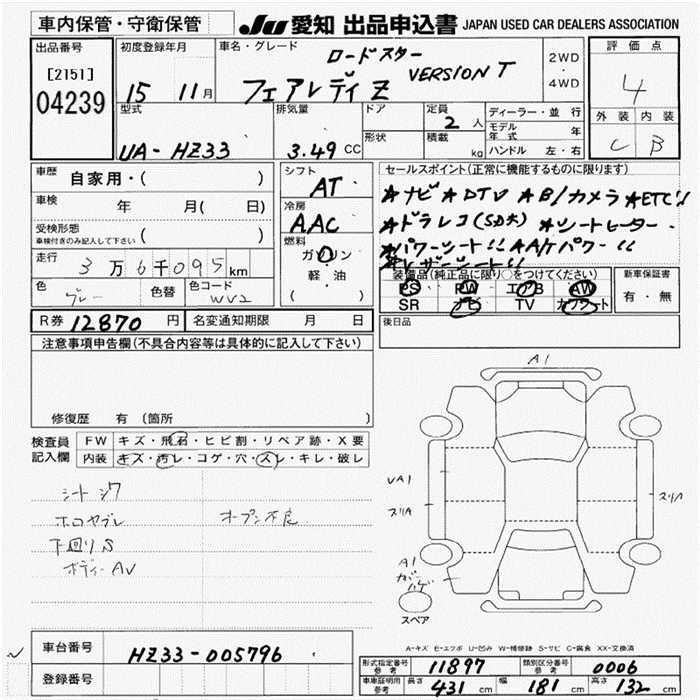 車内保管・守衛保管
JU 愛知 出品申込書 JAPAN USED CAR DEALERS ASSOCIATION
出品番号
[2151]
04239
初度登録年月
15 11月
車名・グレード
ロードスター
フェアレディ Z VERSION T
2WD
・
4WD
評価点
4
外装 内装
C B
型式
UA-HZ33
排気量
3.49 CC
ドア
形状
定員
2 人
積載
kg
ディーラー・並行
モデル年式 年
ハンドル 左・右
車歴 自家用・( )
車検 年 月( 日)
受検形態
車検付きのみ記入して下さい ( )
走行 3万6千095km
色 グレー 色替 色コード WV2
シフト
AT
冷房
AAC
燃料
ガソリン
軽・油
( )
セールスポイント(正常に機能するものに限ります)
★ナビ ★DTV ★B/カメラ ★ETC!!
★ドラレコ(SD欠) ★シートヒーター
★パワーシート!! ★AftパワーL!!
★レザーシート!!
装備品(純正品に限り○をつけてください)
PS PW エアB AW
SR ナビ TV カワシート
新車保証書
有・無
後日品
R券 12870 円 名変通知期限 月 日
注意事項申告欄(不具合内容等は具体的に記入して下さい)
修復歴 有 (箇所 )
検査員
記入欄
FW キズ・飛石・ヒビ割・リペア跡・X要
内装 キズ・汚レ・コゲ・穴・スレ・キレ・破レ
シート シワ
ホロヤブレ オープン不良
下回りS
ボディーAV
A1
UA1
スリA
スリA
A1
ハゲ
スペア
A-キズ E-エクボ U-凹み W-補修跡 S-サビ C-腐食 XX-交換済
車台番号 HZ33-005796
登録番号
形式指定番号 参考 11897 類別区分番号 参考 0006
車庫証明用 参考 長さ 431 cm 幅 181 cm 高さ 132 cm